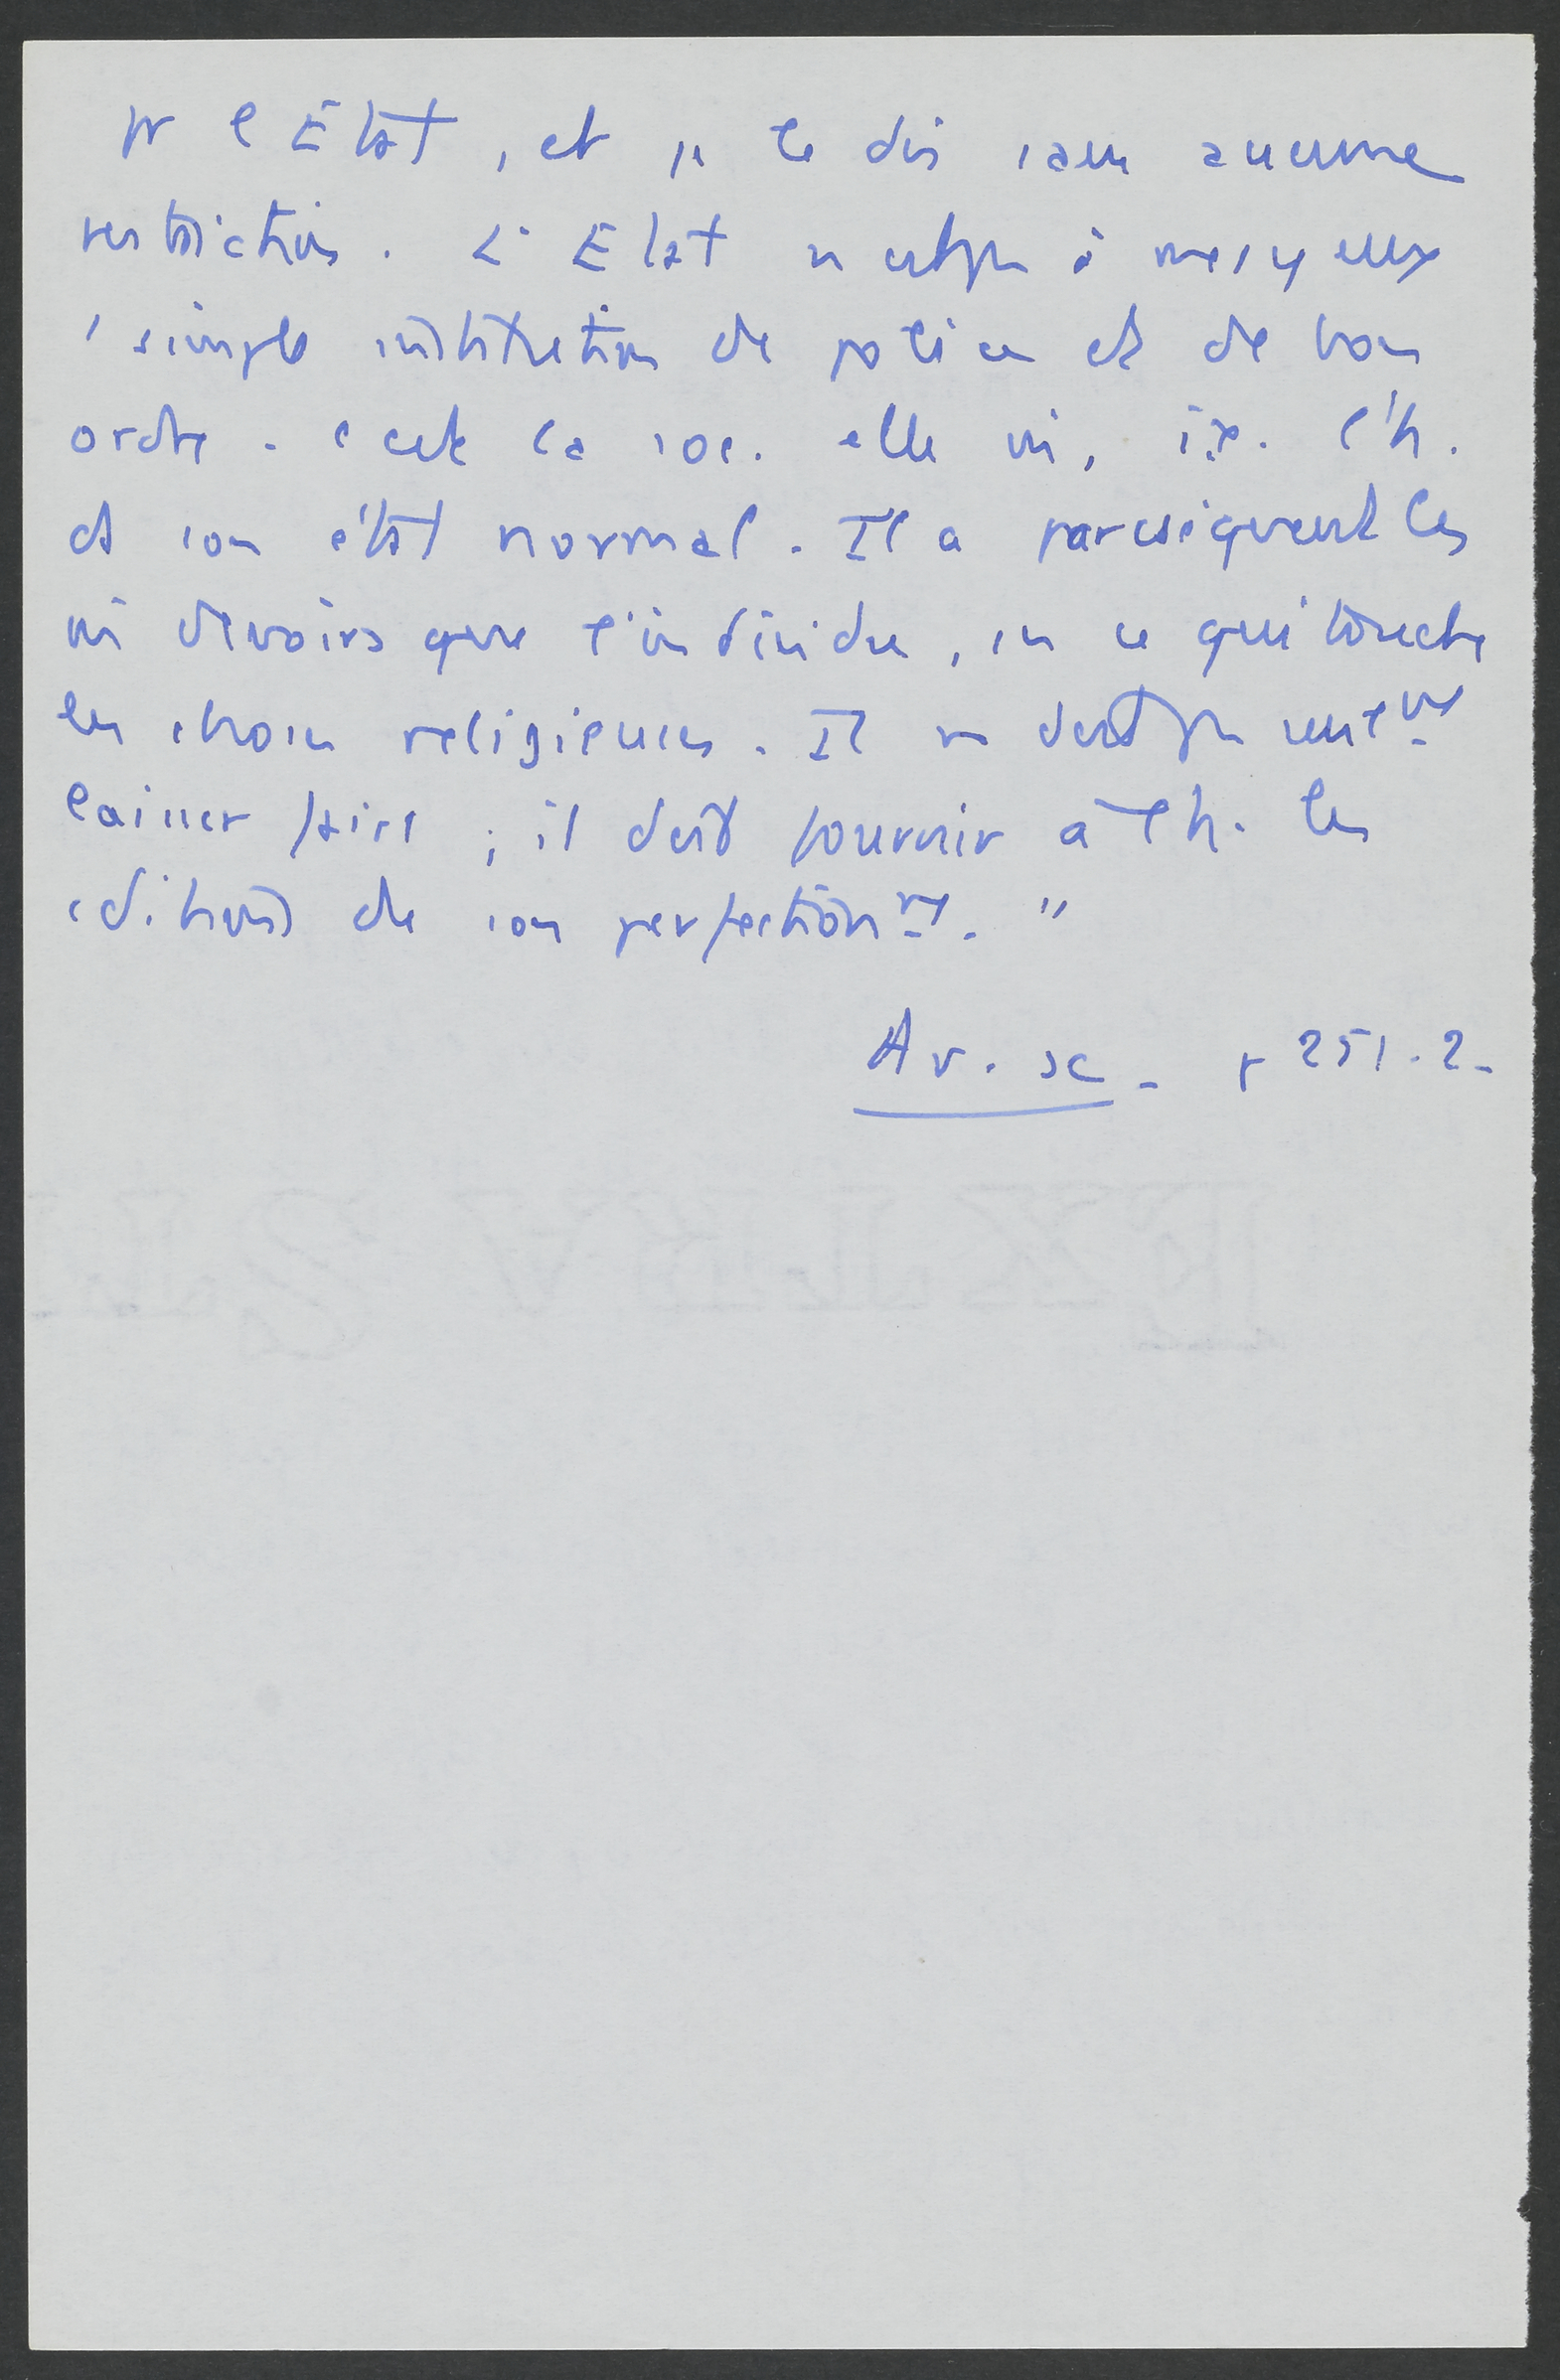 pr l'Etat, et je le dis sans aucune
restriction. L'Etat n'est pas à mes yeux
1 simple institution de police et de bon
ordre. c'est la soc. elle mê, i.e. l'h.
ds son état normal. Il a par cséquent les
mê devoirs que l'individu, en ce qui touche
les choses religieuses. Il ne doit pas seulemt
laisser faire ; il doit fournir à l'h. les
cditions de son perfectionnt. "
Av. sc. p 251.2.